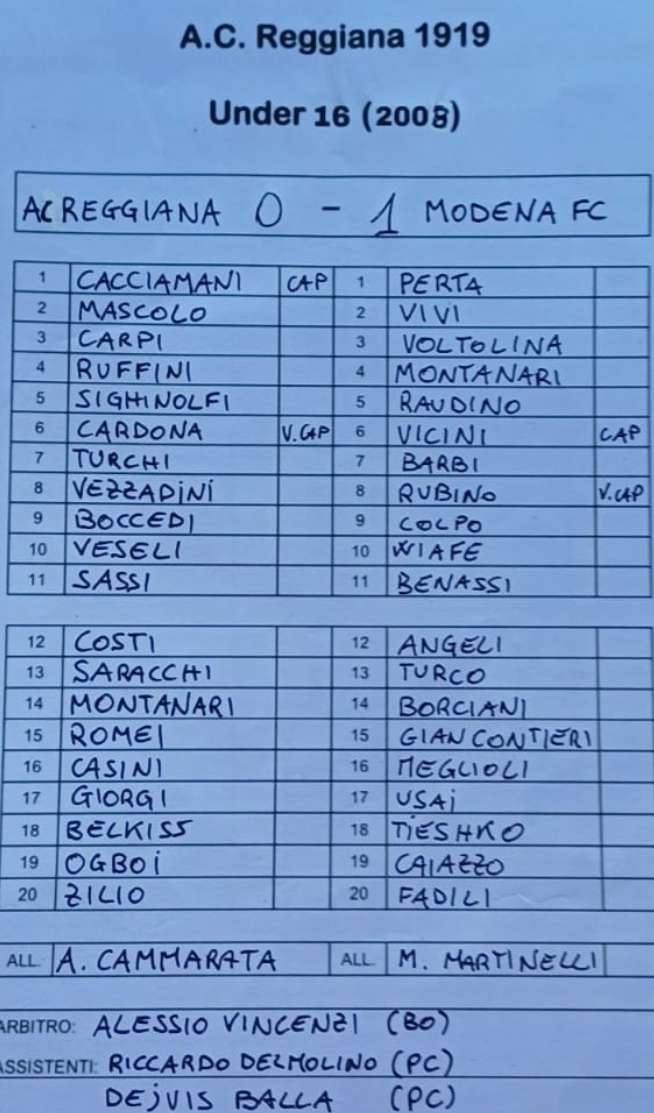 A.C. Reggiana 1919
Under 16 (2008)
AC REGGIANA 0 - 1 MODENA FC
1 CACCIAMANI CAP 1 PERTA
2 MASCOLO 2 VIVI
3 CARPI 3 VOLTOLINA
4 RUFFINI 4 MONTANARI
5 SIGHINOLFI 5 RAUDINO
6 CARDONA V.CAP 6 VICINI CAP
7 TURCHI 7 BARBI
8 VEZZADINI 8 RUBINO V.CAP
9 BOCCEDI 9 COLPO
10 VESELI 10 WIAFE
11 SASSI 11 BENASSI
12 COSTI 12 ANGELI
13 SARACCHI 13 TURCO
14 MONTANARI 14 BORCIANI
15 ROMEI 15 GIANCONTIERI
16 CASINI 16 MEGLIOLI
17 GIORGI 17 USAI
18 BELKISS 18 TIESHKO
19 OGBOI 19 CAIAZZO
20 ZILIO 20 FADILI
ALL. A. CAMMARATA ALL. M. MARTINELLI
ARBITRO: ALESSIO VINCENZI (BO)
ASSISTENTI: RICCARDO DELMOLINO (PC)
DEJVIS BALLA (PC)